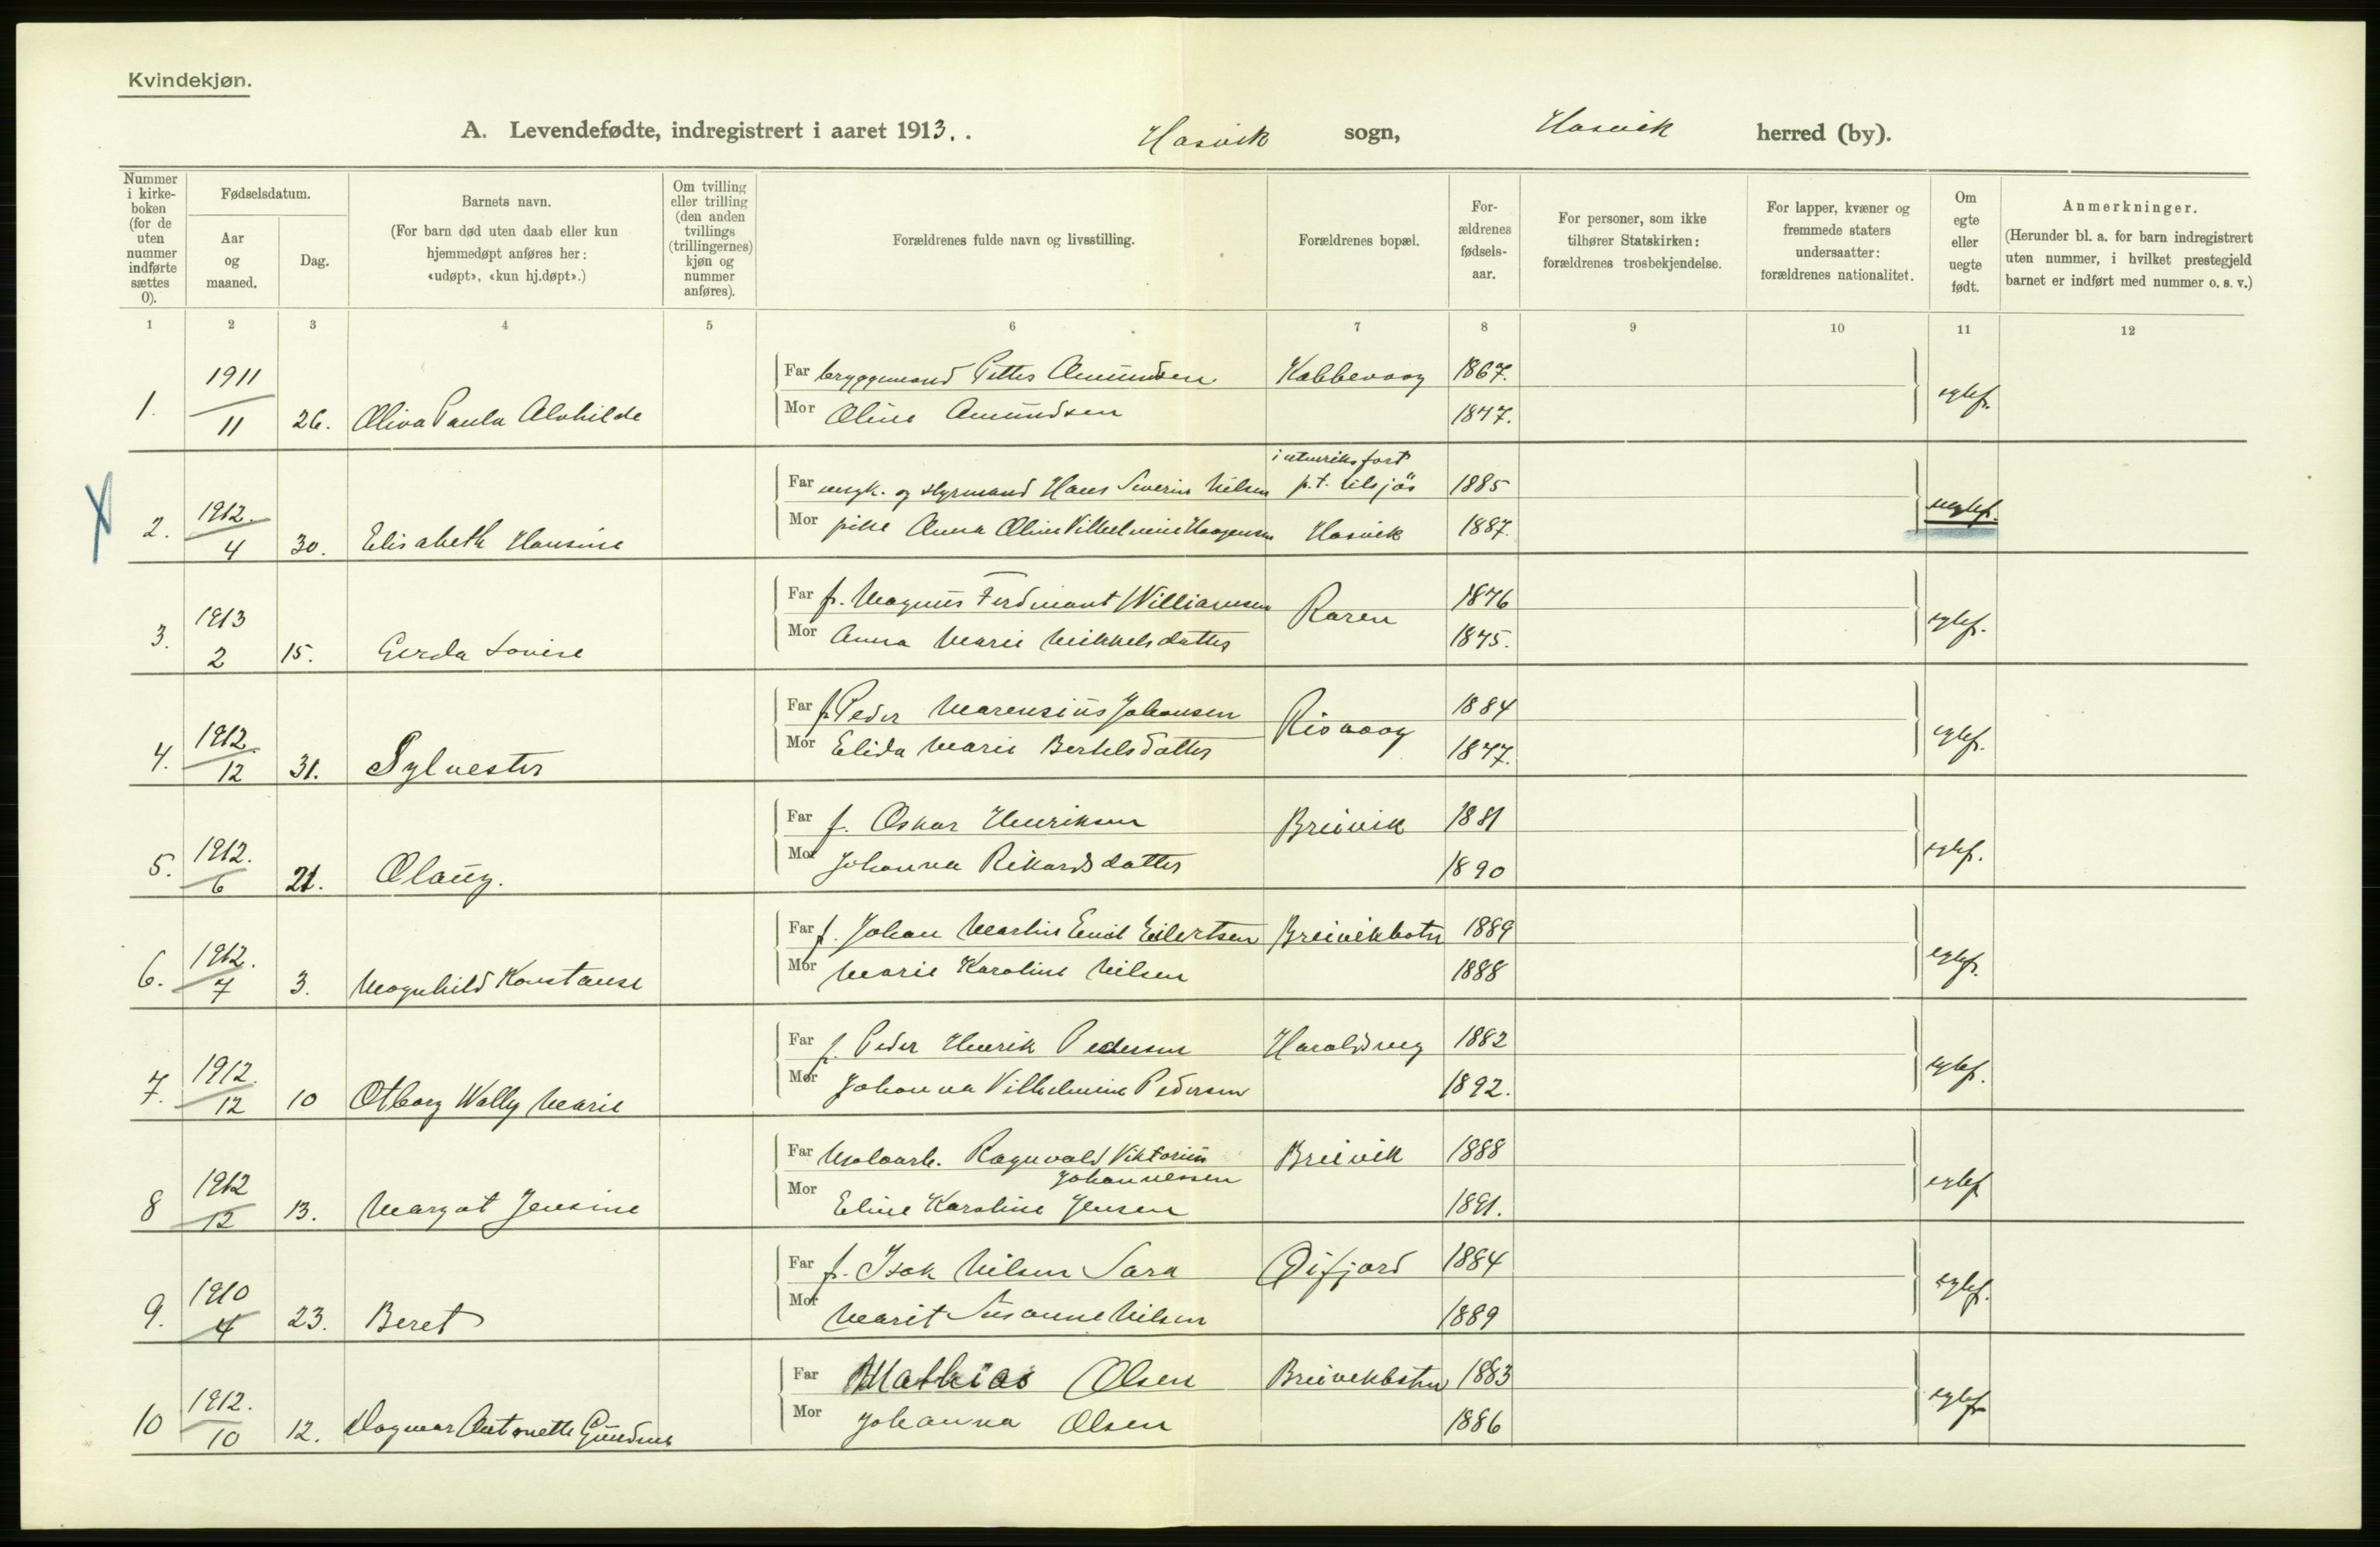 Kvindekjøn.
A. Levendefødte, indregistrert i aaret 1913. . Hasvik sogn, Hasvik herred (by).
Nummer i kirkeboken (for de uten nummer indførte sættes 0).
Fødselsdatum.
Aar og maaned.
Dag.
Barnets navn.
(For barn død uten daab eller kun hjemmedøpt anføres her: «udøpt», «kun hj.døpt».)
Om tvilling eller trilling (den anden tvillings (trillingernes) kjøn og nummer anføres).
Forældrenes fulde navn og livsstilling.
Forældrenes bopæl.
For-ældrenes fødsels-aar.
For personer, som ikke tilhører Statskirken: forældrenes trosbekjendelse.
For lapper, kvæner og fremmede staters undersaatter: forældrenes nationalitet.
Om egte eller uegte født.
Anmerkninger.
(Herunder bl. a. for barn indregistrert uten nummer, i hvilket prestegjeld barnet er indført med nummer o. s. v.)
1 2 3 4 5 6 7 8 9 10 11 12
1. 1911 11 26. Oliva Paula Alvhilde
Far bryggemand Petter Amundsen Kabbevaag 1867.
Mor Oline Amundsen 1877.
egtef.
X 2. 1912. 4 30. Elisabeth Hansine
i utenriksfart
Far ungk. og styrmand Hans Severin Nilsen p.t. tilsjös 1885
Mor pike Anna Oline Vilhelmine Haagensen Hasvik 1887.
uegtef.
3. 1913 2 15. Gerda Lovise
Far f. Magnus Ferdinant Williamsen Raren 1876
Mor Anna Marie Mikkelsdatter 1875.
egtef.
4. 1912. 12 31. Sylvester
Far f. Peder Marensius Johansen Risvaag 1884
Mor Elida Marie Bertelsdatter 1877.
egtef.
5. 1912. 6 21. Olaug.
Far f. Oskar Henriksen Breivik 1881
Mor Johanna Rikardsdatter 1890
egtef.
6. 1912. 7 3. Magnhild Konstanse
Far f. Johan Martin Emil Eilertsen Breivikbotn 1889
Mor Marie Karoline Nilsen 1888
egtef.
7. 1912. 12 10 Otborg Wally Marie
Far f. Peder Henrik Pedersen Haraldsneg 1882
Mor Johanna Vilhelmine Pedersen 1892.
egtef.
8 1912 12 13. Margot Jensine
Far Maloarb. Ragnvald Viktorius Breivik 1888
Johannessen
Mor Eline Karoline Jensen 1891.
egtef
9. 1910 4 23. Beret
Far f. Isak Nilsen Sara Öifjord 1884
Mor Marit Susanne Nilsen 1889
egtef.
10 1912. 10 12. Dagmar Antonette Gundine
Far Mathias Olsen Breivikbotn 1883
Mor Johanna Olsen 1886
egtef.